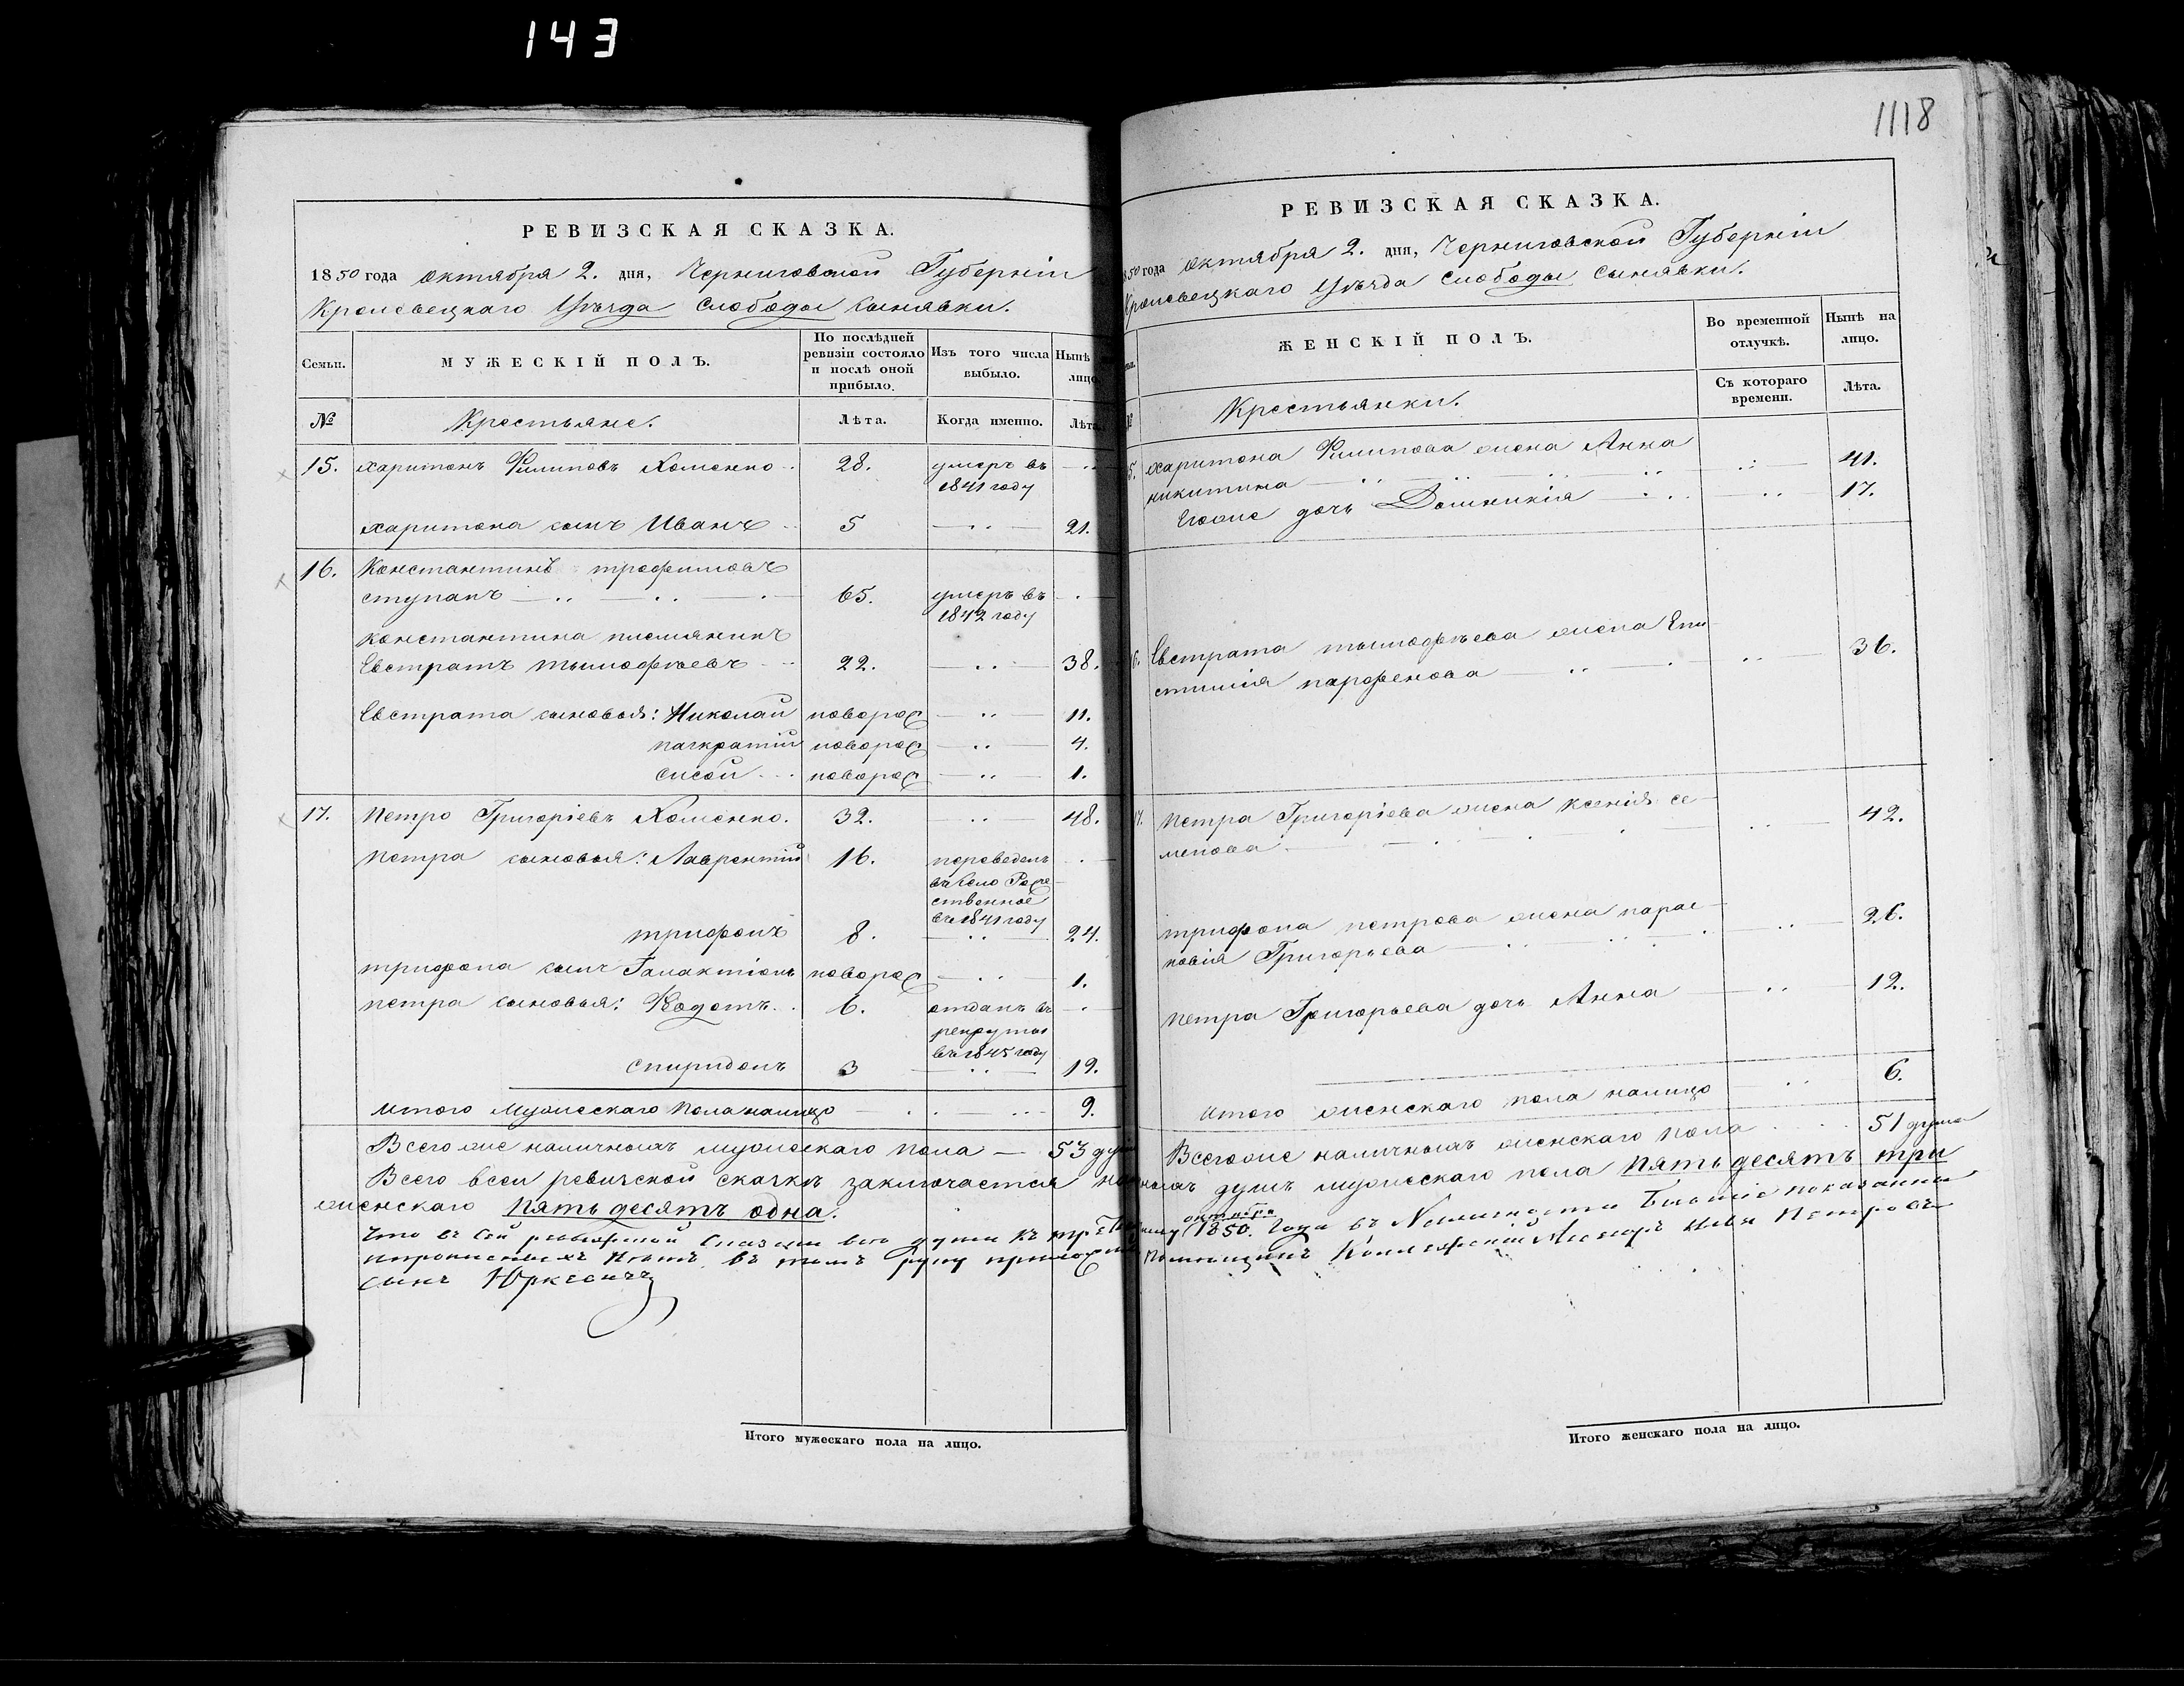 143
1118
РЕВИЗСКАЯ СКАЗКА.
1850 года октября 2. дня, Черниговской Губерніи
Кролевецкаго Уѣзда Слободы Сынявки.
Семьи.
МУЖЕСКІЙ ПОЛЪ.
По послѣдней ревизіи состояло и послѣ оной прибыло.
Изъ того числа выбыло.
Нынѣ лицо
№ Крестьяне. Лѣта. Когда именно. Лѣта
15. Харитонъ Филиповъ Хоменко 28. умеръ въ
1841 году
Харитона сынъ Иванъ 5 21.
16. Константинъ трофимовъ
ступакъ 65. умеръ въ
1842 году
Константина племянникъ
Евстратъ тымофѣевъ 22. 38.
Евстрата сыновья: Николай новорож 11.
панкратій новорож 4.
сисой новорож 1.
17. Петро Григоріевъ Хоменко. 32. 48.
Петра сыновья: Лаврентій 16. переведенъ
въ село Роже
ственное
въ 1841 году
трифонъ 8. 24.
трифона сынъ Галактіонъ новорож 1.
петра сыновья: Федотъ 6. отданъ въ
рекруты
въ 1845 году
спиридонъ 3 19.
итого Мужескаго пола налицо 9.
Всего же наличныхъ мужескаго пола — 53 души
Всего всей ревизской сказкѣ заключается
женскаго пять десятъ одна.
Что въ сей ревизской Сказки все души къ
сынъ Юркевичъ
Итого мужескаго пола на лицо.
РЕВИЗСКАЯ СКАЗКА.
1850 года октября 2. дня, Черниговской Губерніи
Кролевецкаго Уѣзда Слободы Сынявки.
ЖЕНСКІЙ ПОЛЪ.
Во временной отлучкѣ.
Нынѣ на лицо.
Съ котораго времени.
Лѣта.
№ Крестьянки.
15. Харитона Филипова жена Анна
никитина 41.
Егоже дочь Домникія 17.
16. Евстрата тымофѣева жена Епи
стимія парфенова 36.
17. Петра Григоріева жена Ксенія се
менова 42.
трифона петрова жена парас
ковія Григорьева 26.
петра Григорьева дочь Анна 12.
итого женскаго пола налицо 6.
Всегоже наличныхъ женскаго пола 51 душа
душъ мужескаго пола пять десятъ три
октября
1850. Года въ показанны
Коллежскій Илья Петровъ
Итого женскаго пола на лицо.